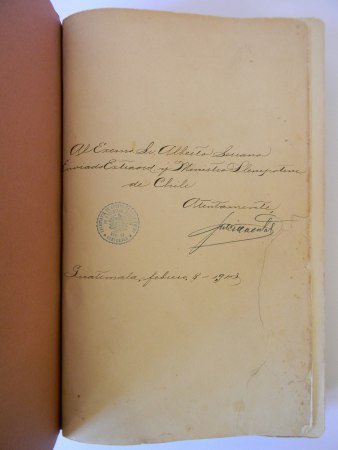 Al Excmo Sr. Alberto Serrano
Enviado Extraord. y Ministro Plenipoten
de Chile
Atentamente
Guatemala, febrero 8 - 1903